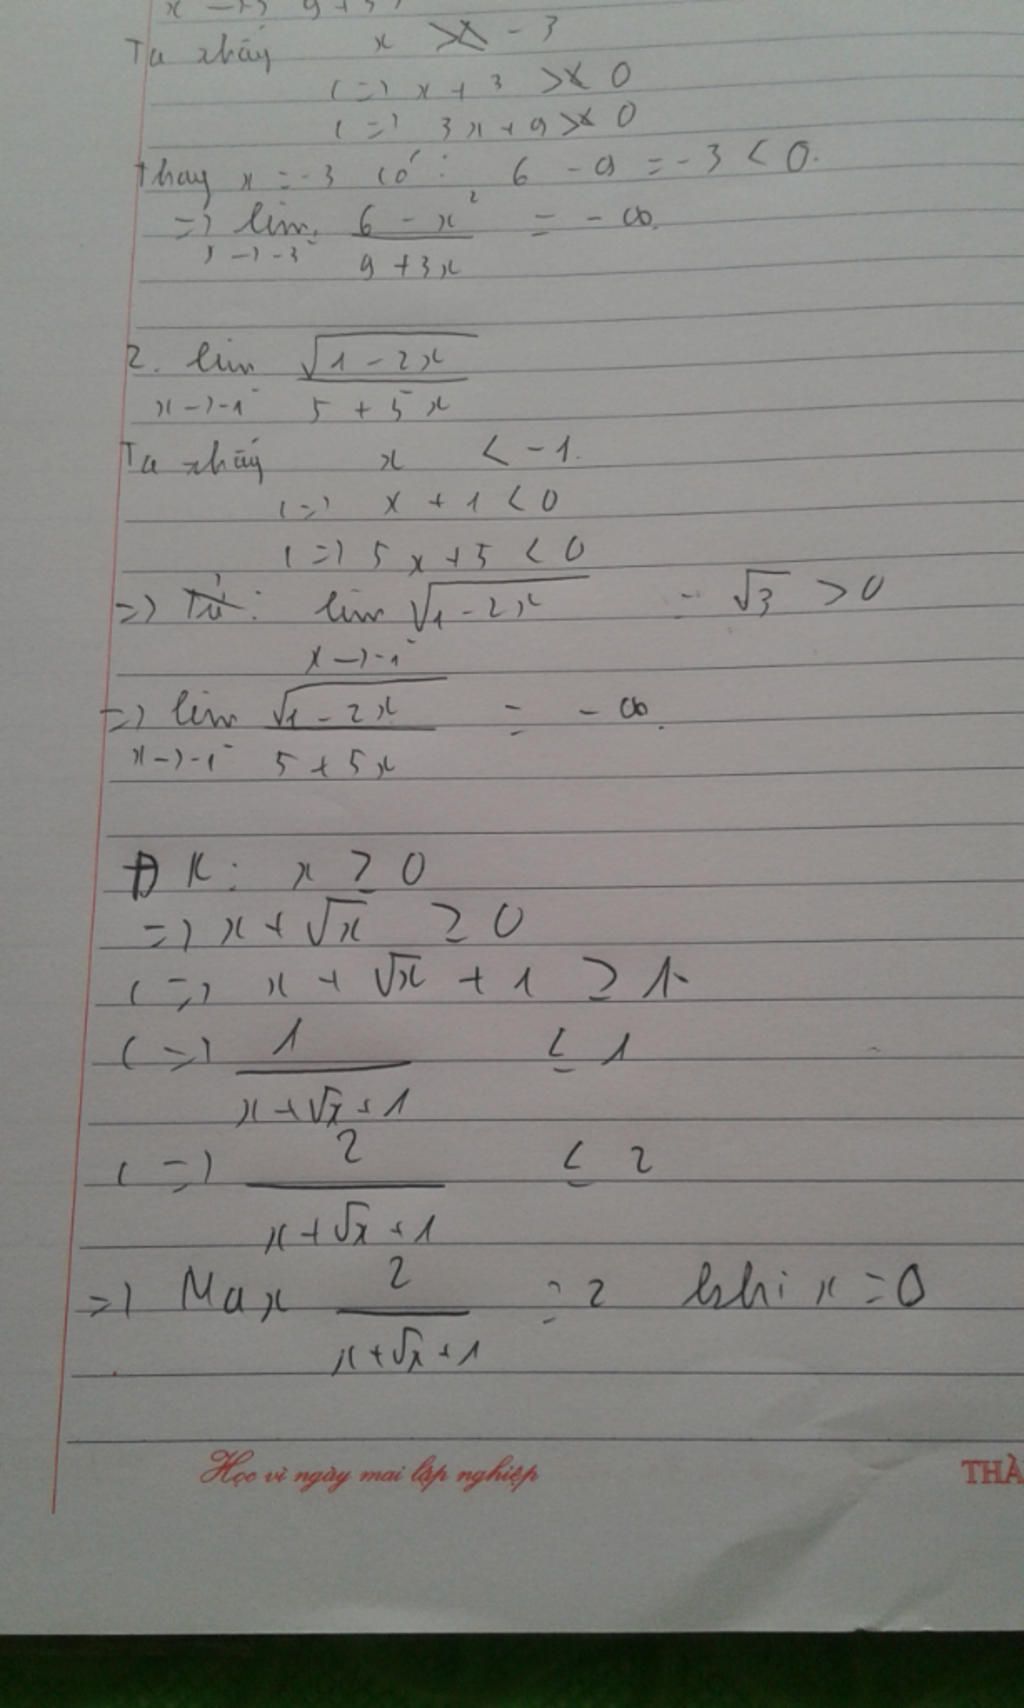 Ta thấy x > -3
(=) x + 3 > 0
(=) 3x + 9 > 0
Thay x = -3 có: 6 - 9 = -3 < 0.
=) lim 6 - x² = - ∞.
x -> -3 9 + 3x
2. lim √1 - 2x
x -> -1⁻ 5 + 5x
Ta thấy x < -1.
(=) x + 1 < 0
(=) 5x + 5 < 0
=) Tử: lim √1 - 2x = √3 > 0
x -> -1⁻
=) lim √1 - 2x = - ∞.
x -> -1⁻ 5 + 5x
ĐK: x ≥ 0
=) x + √x ≥ 0
(=) x + √x + 1 ≥ 1.
(=) 1 ≤ 1
x + √x + 1
(=) 2 ≤ 2
x + √x + 1
=) Max 2 = 2 khi x = 0
x + √x + 1
Học vì ngày mai lập nghiệp
THÀ